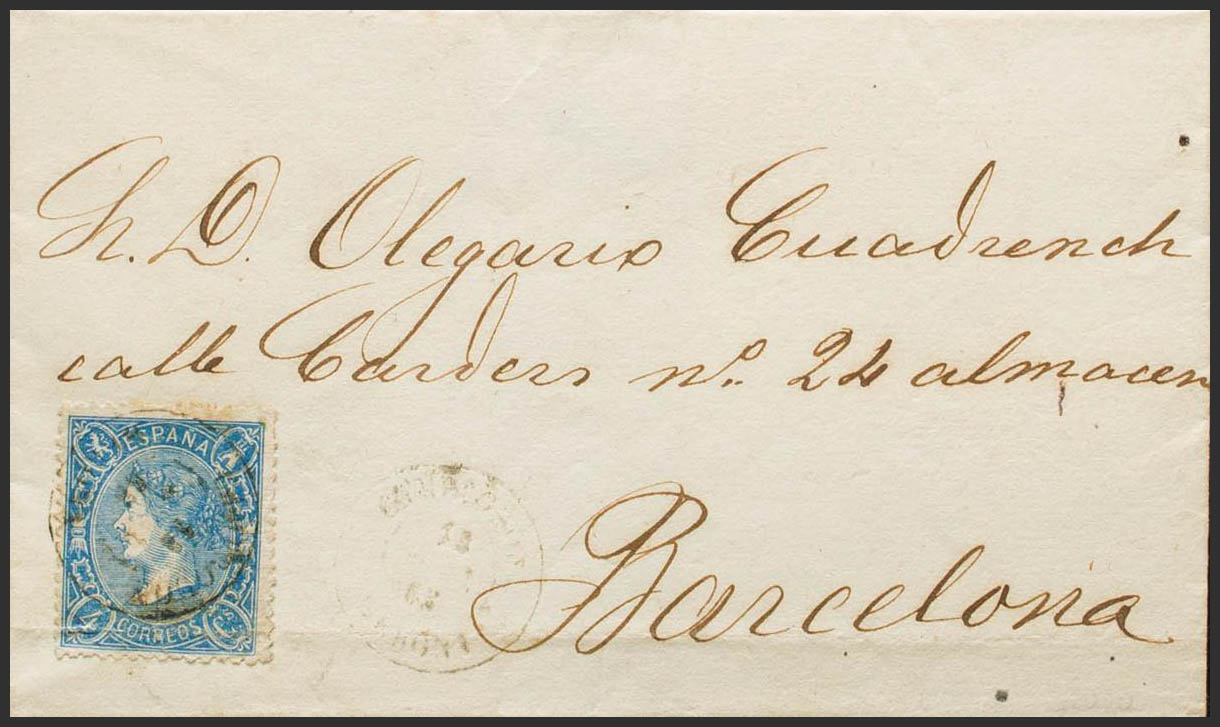 Sr. D. Olegario Cuadrench
calle Carders nº 24 almacen
Barcelona
ESPAÑA
4 CORREOS Cs